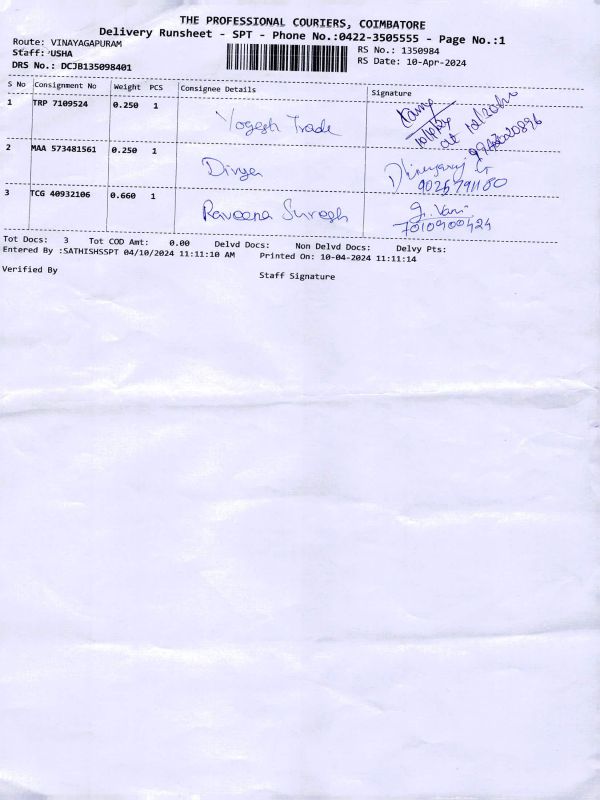 THE PROFESSIONAL COURIERS, COIMBATORE
Delivery Runsheet - SPT - Phone No.:0422-3505555 - Page No.:1
Route: VINAYAGAPURAM
RS No.: 1350984
Staff: USHA
RS Date: 10-Apr-2024
DRS No.: DCJB135098401
S No Consignment No Weight PCS Consignee Details Signature
1 TRP 7109524 0.250 1 Yogesh Trade
10/4/24
at 12/20
2 MAA 573481561 0.250 1 Divya
9025791180
3 TCG 40932106 0.660 1 Raveena Suresh G. Vani
7010900424
Tot Docs: 3 Tot COD Amt: 0.00 Delvd Docs: Non Delvd Docs: Delvy Pts:
Entered By :SATHISHSSPT 04/10/2024 11:11:10 AM Printed On: 10-04-2024 11:11:14
Verified By
Staff Signature